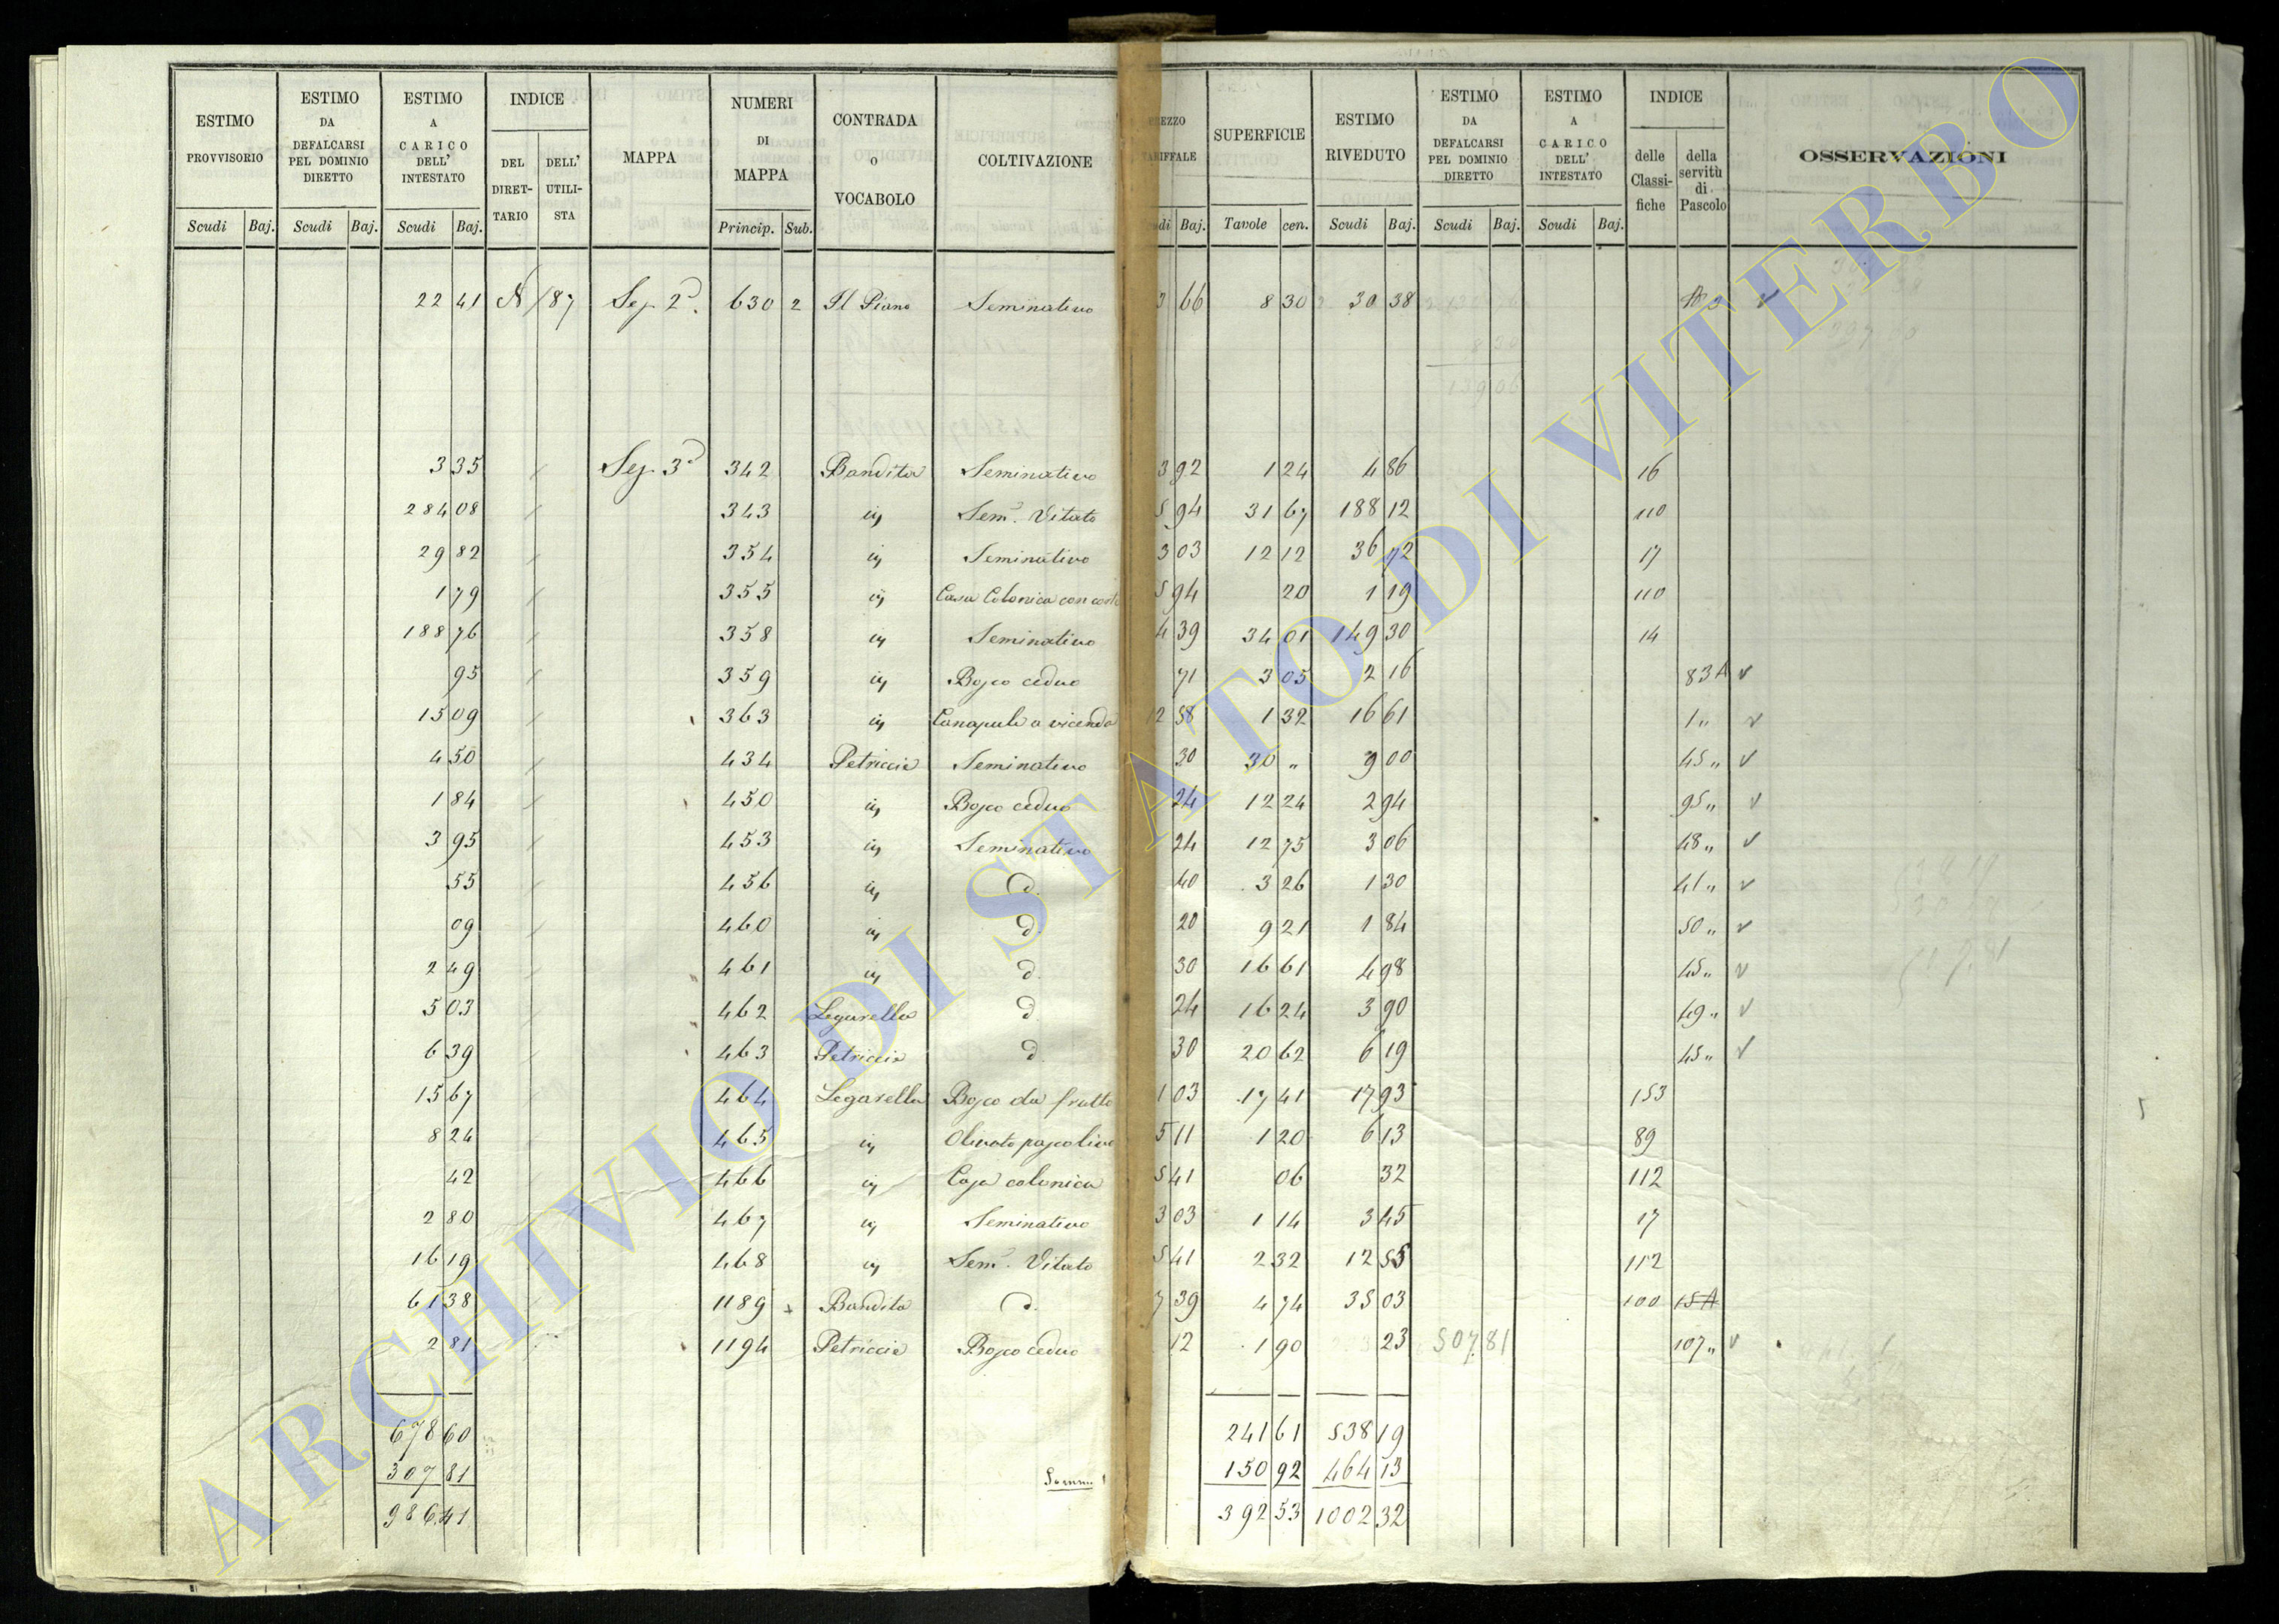 ESTIMO PROVVISORIO | ESTIMO DA DEFALCARSI PEL DOMINIO DIRETTO | ESTIMO A CARICO DELL' INTESTATO | INDICE DEL DIRETTARIO | DELL' UTILISTA | MAPPA | NUMERI DI MAPPA | CONTRADA O VOCABOLO | COLTIVAZIONE | SUPERFICIE | ESTIMO RIVEDUTO | ESTIMO DA DEFALCARSI PEL DOMINIO DIRETTO | ESTIMO A CARICO DELL' INTESTATO | INDICE delle Classifiche | della servitù di Pascolo | OSSERVAZIONI
Scudi | Baj. | Scudi | Baj. | Scudi | Baj. | Princip. | Sub. | Baj. | Tavole | cen. | Scudi | Baj. | Scudi | Baj. | Scudi | Baj.
22 41 | 187 | Sez. 2ª | 630 | 2 | Il Piano | Seminativo | 3 66 | 8 30 | 30 38
3 35 | Sez. 3ª | 342 | Bandita | Seminativo | 3 92 | 1 24 | 4 86 | 16
284 08 | 343 | in | Sem.º Vitato | 5 94 | 31 67 | 188 12 | 110
29 82 | 354 | in | Seminativo | 3 03 | 12 12 | 36 72 | 17
1 79 | 355 | in | Casa Colonica con corte | 5 94 | 20 | 1 19 | 110
188 76 | 358 | in | Seminativo | 4 39 | 34 01 | 149 30 | 14
95 | 359 | in | Bosco ceduo | 71 | 3 05 | 2 16 | 83 A
15 09 | 363 | in | Canapule a vicenda | 12 58 | 1 32 | 16 61 | 1 "
4 50 | 434 | Petriccie | Seminativo | 30 | 30 " | 9 00 | 45 "
1 84 | 450 | in | Bosco ceduo | 24 | 12 24 | 2 94 | 95 "
3 95 | 453 | in | Seminativo | 24 | 12 75 | 3 06 | 48 "
55 | 456 | in | d. | 40 | 3 26 | 1 30 | 41 "
09 | 460 | in | d. | 20 | 9 21 | 1 84 | 50 "
2 49 | 461 | in | d. | 30 | 16 61 | 4 98 | 45 "
5 03 | 462 | Legarella | d. | 24 | 16 24 | 3 90 | 49 "
6 39 | 463 | Petriccie | d. | 30 | 20 62 | 6 19 | 45 "
15 67 | 464 | Legarella | Bosco da frutto | 1 03 | 17 41 | 17 93 | 153
8 24 | 465 | in | Olivato pascolivo | 5 11 | 1 20 | 6 13 | 89
42 | 466 | in | Casa colonica | 5 41 | 06 | 32 | 112
2 80 | 467 | in | Seminativo | 3 03 | 1 14 | 3 45 | 17
16 19 | 468 | in | Sem.º Vitato | 5 41 | 2 32 | 12 55 | 112
61 38 | 1189 | Bandita | d. | 7 39 | 4 74 | 35 03 | 100 | 15 A
2 81 | 1194 | Petriccie | Bosco ceduo | 12 | 1 90 | 23 | 507 81 | 107 "
678 60 | 241 61 | 538 19
307 81 | 150 92 | 464 13
986 41 | 392 53 | 1002 32
ARCHIVIO DI STATO DI VITERBO